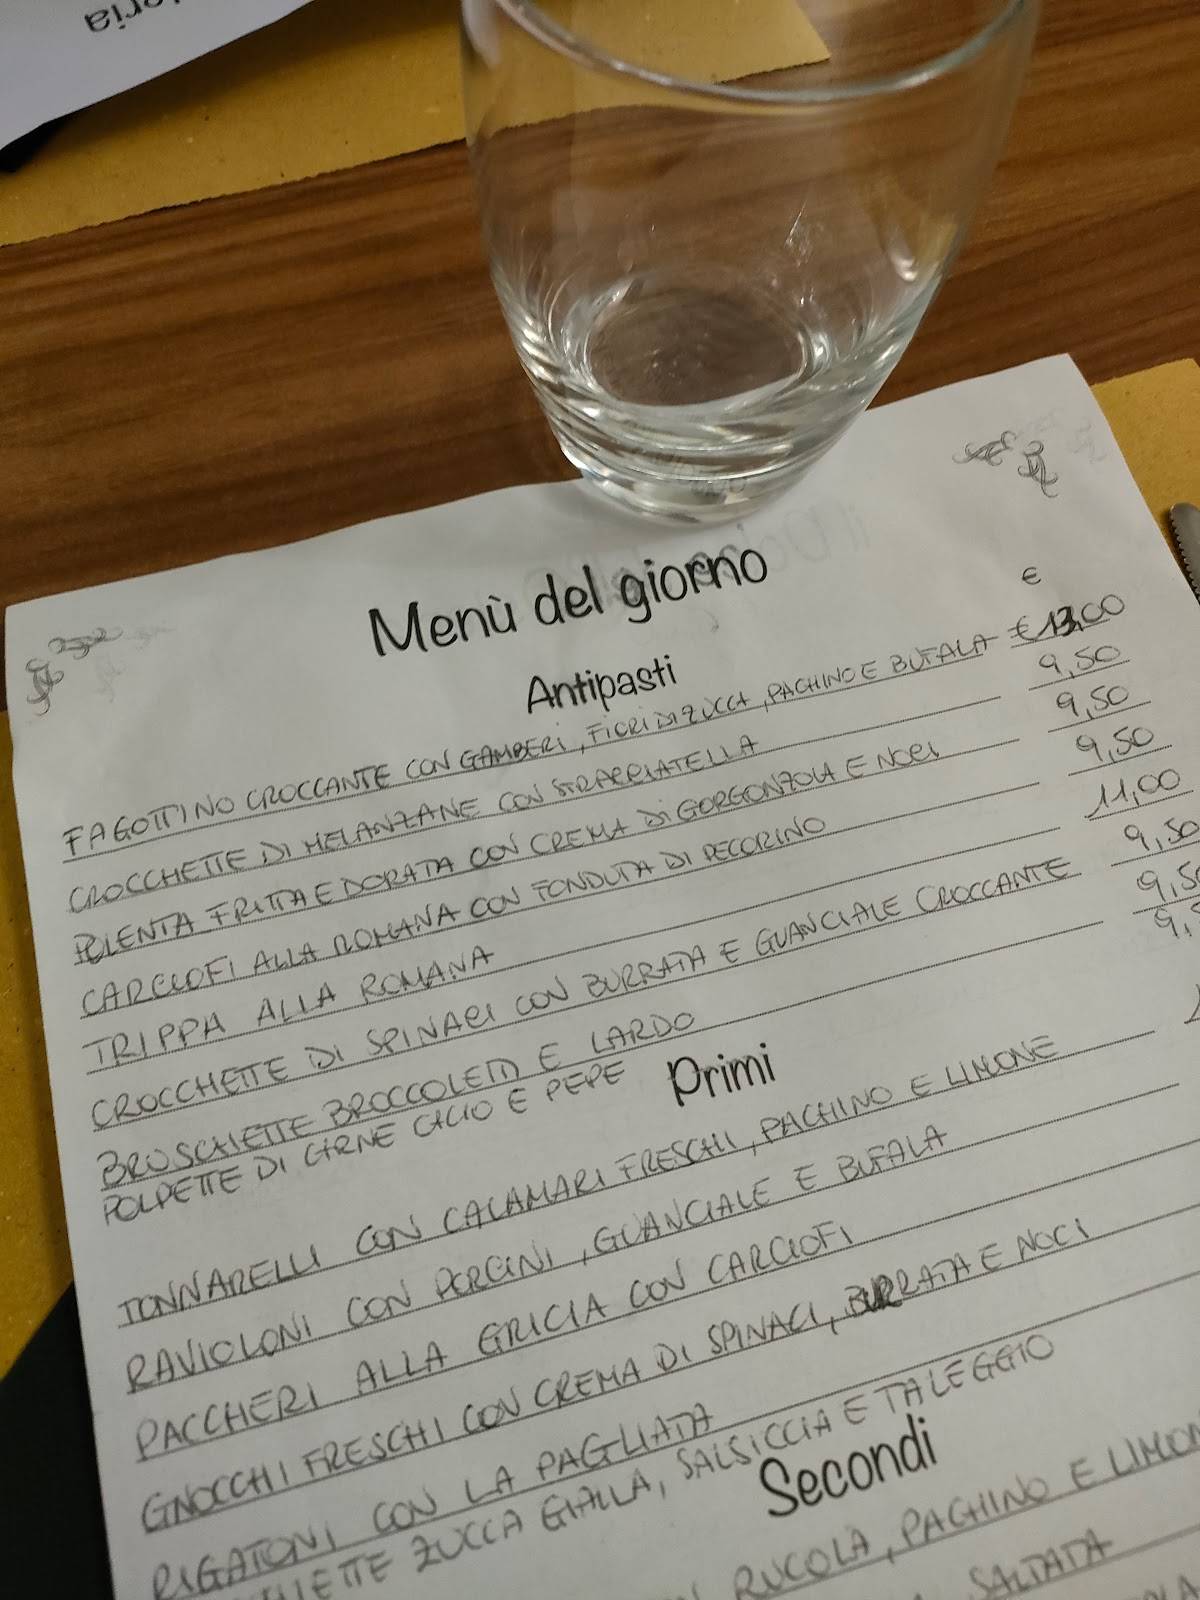 Menù del giorno
€
Antipasti
FAGOTTINO CROCCANTE CON GAMBERI, FIORI DI ZUCCA, PACHINO E BUFALA €13,00
CROCCHETTE DI MELANZANE CON STRACCIATELLA 9,50
POLENTA FRITTA E DORATA CON CREMA DI GORGONZOLA E NOCI 9,50
CARCIOFI ALLA ROMANA CON FONDUTA DI PECORINO 9,50
TRIPPA ALLA ROMANA 11,00
CROCCHETTE DI SPINACI CON BURRATA E GUANCIALE CROCCANTE 9,50
BRUSCHETTE BROCCOLETTI E LARDO 9,50
POLPETTE DI CARNE CACIO E PEPE 9,5
Primi
TONNARELLI CON CALAMARI FRESCHI, PACHINO E LIMONE 1
RAVIOLONI CON PORCINI, GUANCIALE E BUFALA
PACCHERI ALLA GRICIA CON CARCIOFI
GNOCCHI FRESCHI CON CREMA DI SPINACI, BURRATA E NOCI
RIGATONI CON LA PAGLIATA
ZUCCA GIALLA, SALSICCIA E TALEGGIO
Secondi
RUCOLA, PACHINO E LIMON
SALTATA